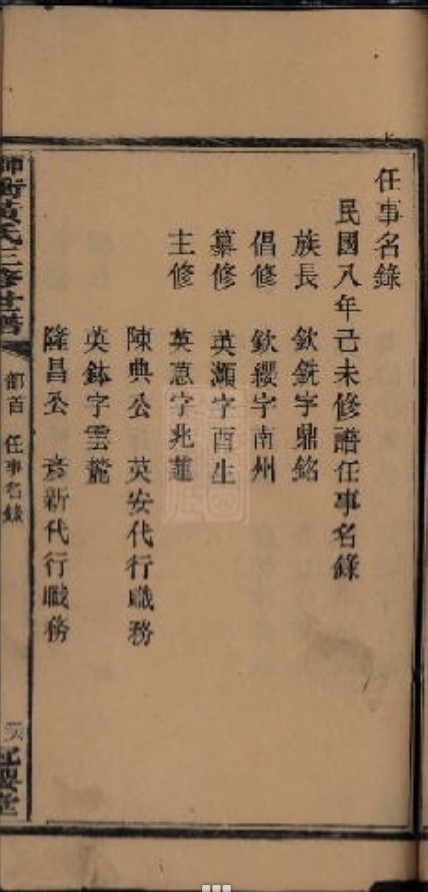 任事名錄
民國八年己未修譜任事名錄
族長 欽銑字鼎銘
倡修 欽纓字南州
纂修 英灝字酉生
主修 英蕙字兆蓮
陳典公 英安代行職務
英鉢字雲龍
隆昌公 彥新代行職務
黃氏三修世譜
部首 任事名錄
冠纓堂